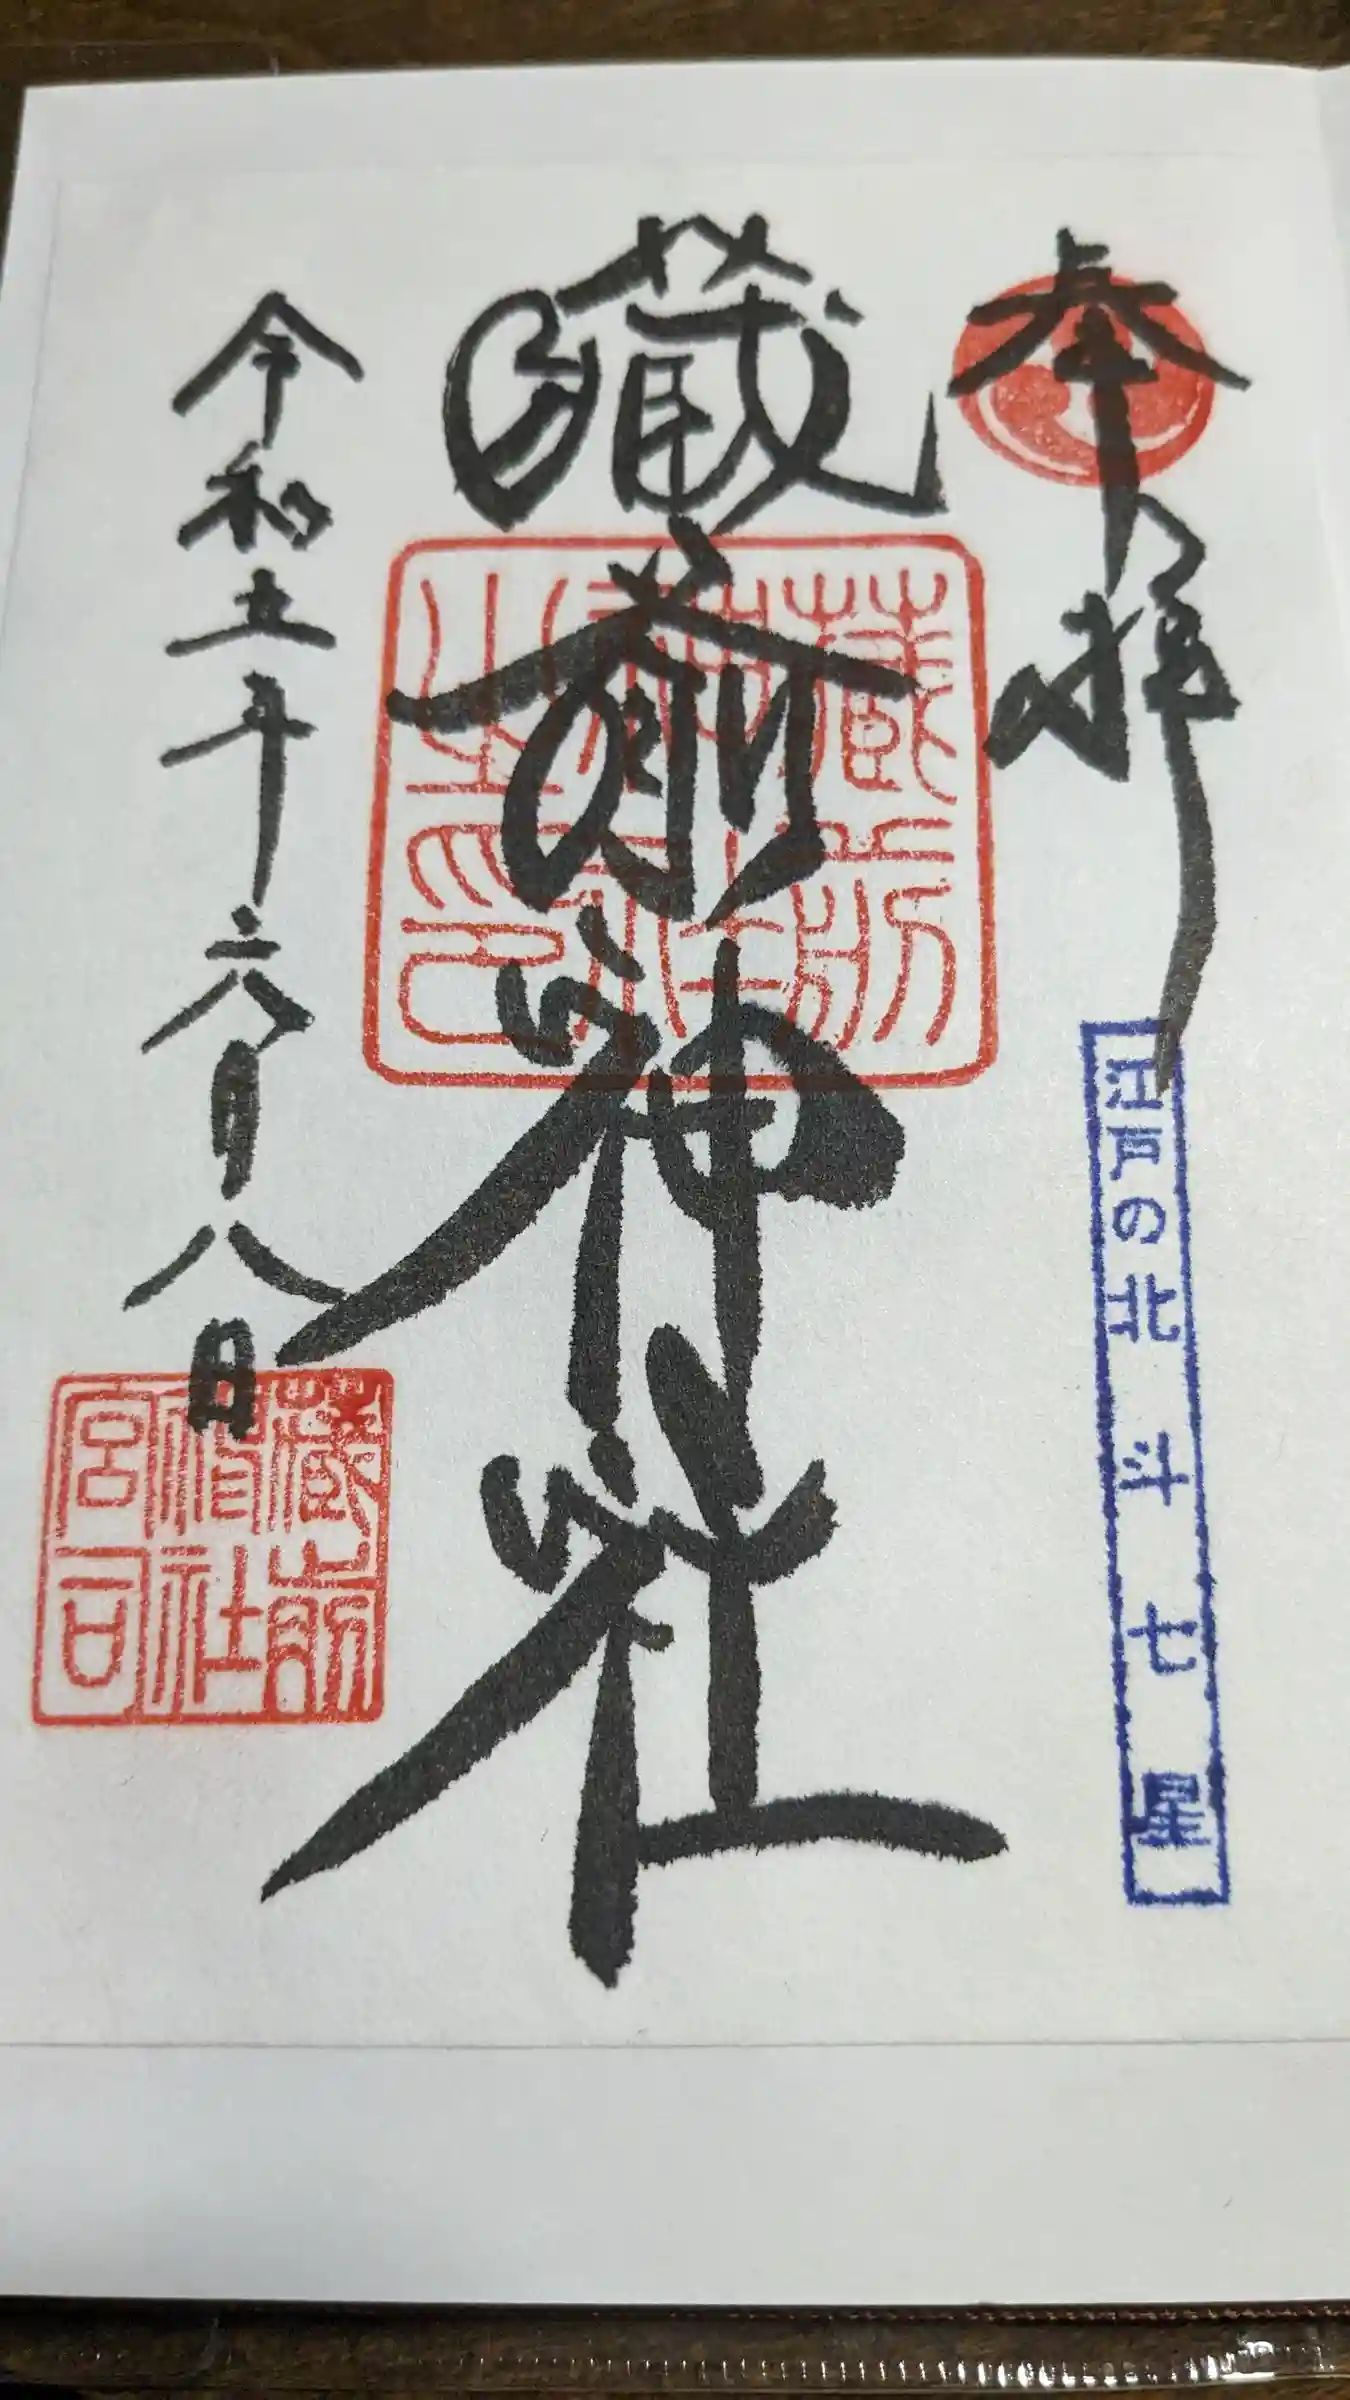 奉拝
江戸の北斗七星
蔵前神社
蔵前神社之印
令和五年六月八日
蔵前神社宮司